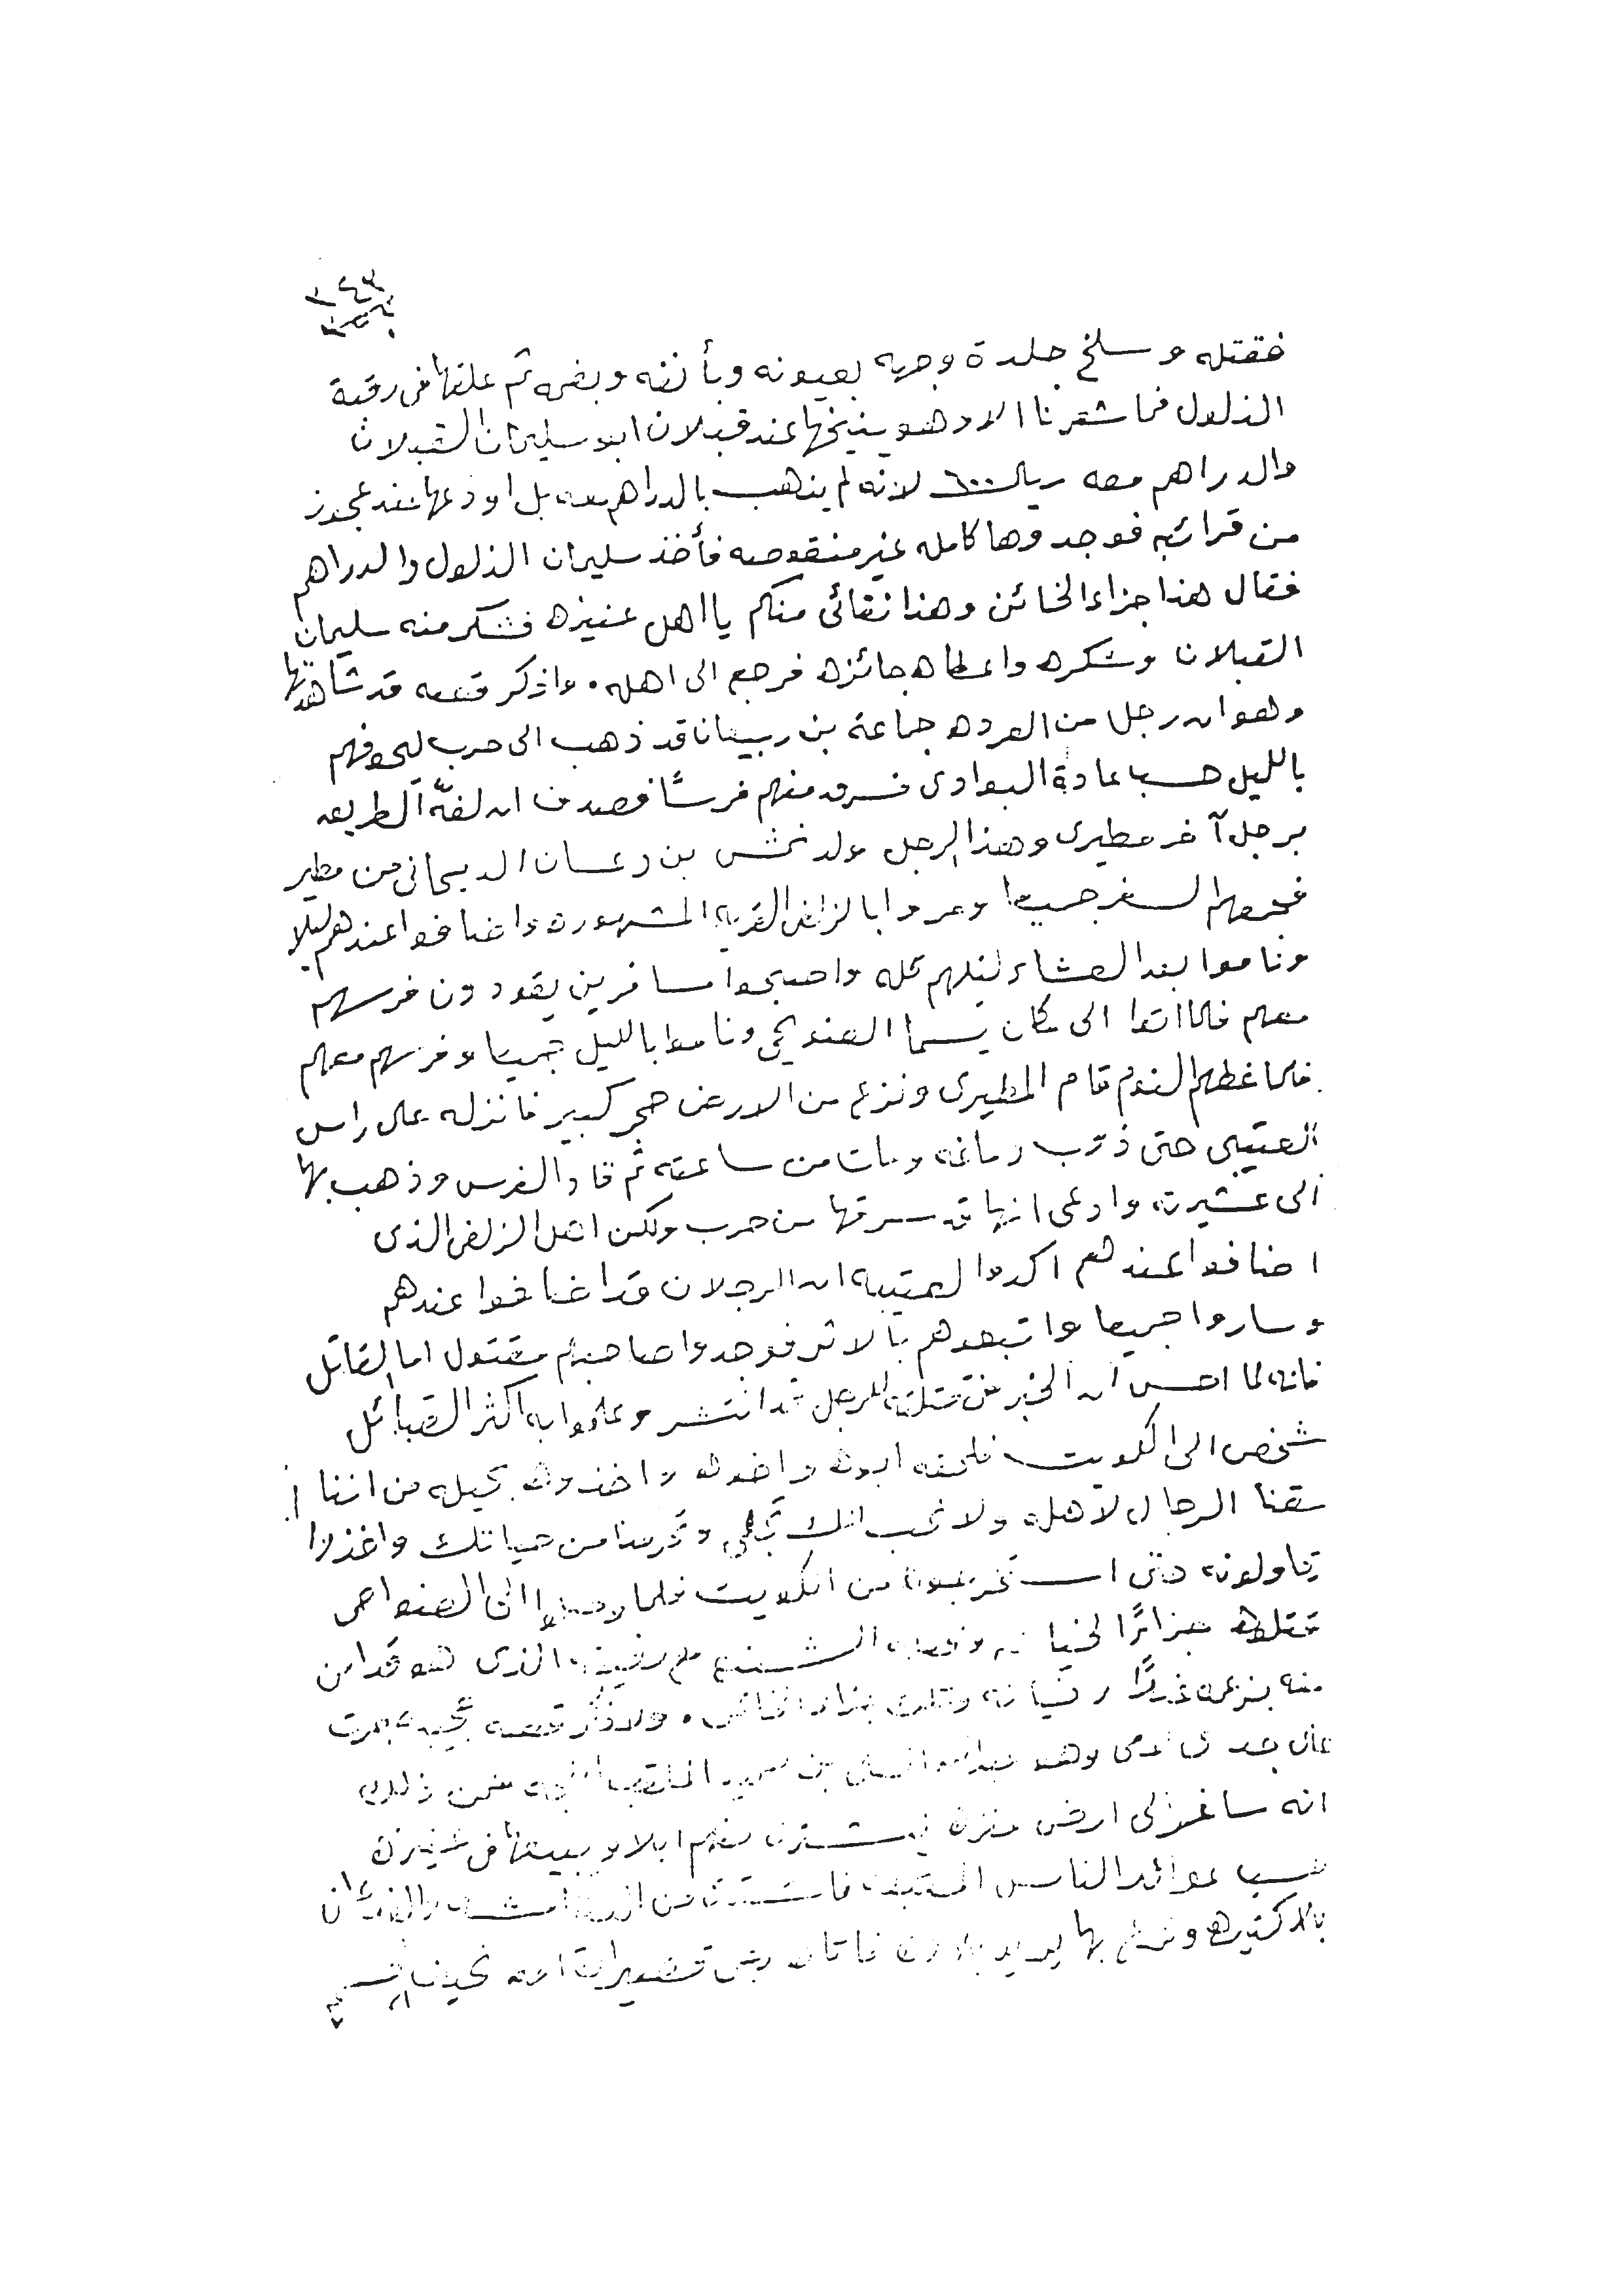 ٣٤٣
فقتله وسلخ جلدة وجهه بعيونه وبأنفه وبفمه ثم علقها في رقبة
الذلول فما شعرنا الا وهو ينيخها عند قبلان ابو سليمان القبلان
والدراهم معه ريال ٦٠٠ لانه لم يذهب بالدراهم معه بل اودعها عند عجوز
من قرائبه فوجدوها كامله غير منقوصه فأخذ سليمان الذلول والدراهم
فقال هذا جزاء الخائن وهذا نقائي منكم يا اهل عنيزه فتشكر منه سليمان
القبلان وشكره واعطاه جائزه فرجع الى اهله . واذكر قصه قد شاهدتها
وهو ان رجل من العرده جماعة بن ربيعان قد ذهب الى حرب ليحوفهم
بالليل حسب عادة البوادي فسرق منهم فرسًا فصدف ان لفّه الطريق
برجل آخر مطيري وهذا الرجل ولد نحش بن دعسان الديحاني من مطير
فجمعهم السفر جميعا ومروا بالزلفي القريه المشهوره واضافوا عندهم ليلا
وناموا بعد العشاء ليلهم كله واصبحوا مسافرين يقودون فرسهم
معهم فلما اتوا الى مكان يسما الضويحي وناموا بالليل جميعا وفرسهم معهم
فلما غطهم النوم قام المطيري ونزع من الارض حجر كبير فانزله على راس
العتيبي حتى ذوّب دماغه ومات من ساعته ثم قاد الفرس وذهب بها
الى عشيرته وادعى انها قد سرقها من حرب ولكن اهل الزلفي الذي
اضافوا عندهم اكدوا لعتيبه ان الرجلان قد اضافوا عندهم
وساروا جميعا واتبعوهم بالاثر فوجدوا صاحبهم مقتول اما القاتل
فانه لما احس ان الخبر عن قتلته للرجل قد انتشر وعلموا به اكثر القبائل
شخص الى الكويت فلحقه ابوه واخوه واخذوه بحيله من اننا
سقنا الرجال لاهله ولا نحب انك تجلى وتحرمنا من حياتك واخذوا
يناولونه حتى استخرجوه من الكويت فلما وصلوا الى الضواحي
قتلوه جزائًا لخيانته وفعله الشنيع مع رفيقه الذي هو قد امن
منه بزعمه غدرًا وخيانه وهذى جزاء الخائن . ولنذكر قصه عجيبه جرت
على جد والدي وهو عبدالله بن الملقب فمن ذلك
انه سافر الى ارض عنزه ليشترى منهم ابلا ويبيعها في عنيزه
حسب عوائد الناس المتبعه فاشترى من
بلاد كثيره ونزع بها يريد بلاده فاتاه